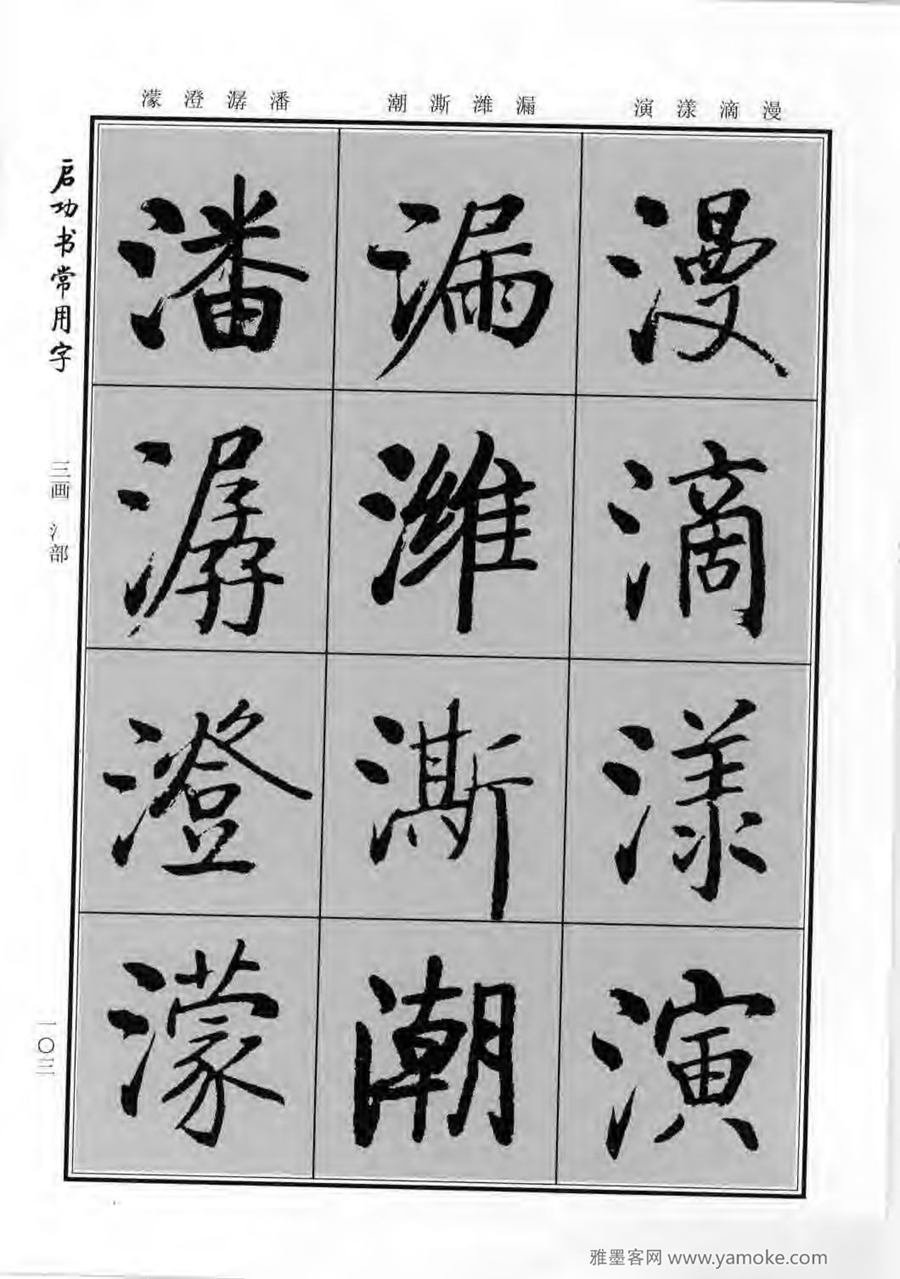 漫滴漾演
漏潍澌潮
潘潺澄濛
漫
滴
漾
演
漏
潍
澌
潮
潘
潺
澄
濛
启功书常用字
三画 氵部
一〇三
雅墨客网 www.yamoke.com